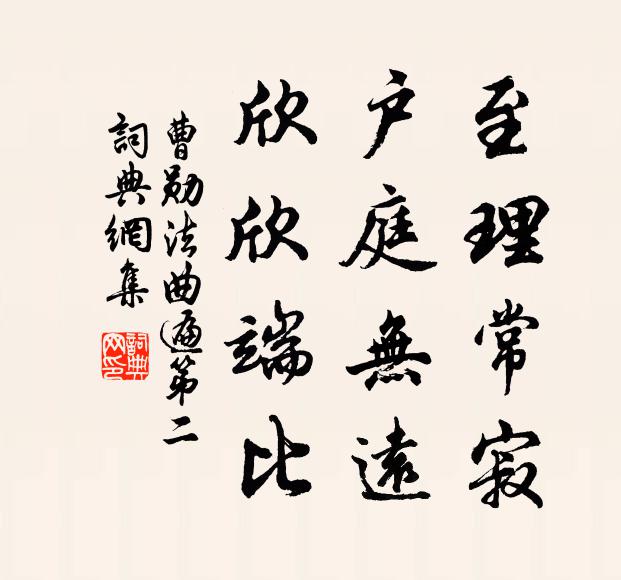 至理常寂
户庭無遠
欣欣端比
曹勛法曲遍第二
詞典網集
詞典
网印